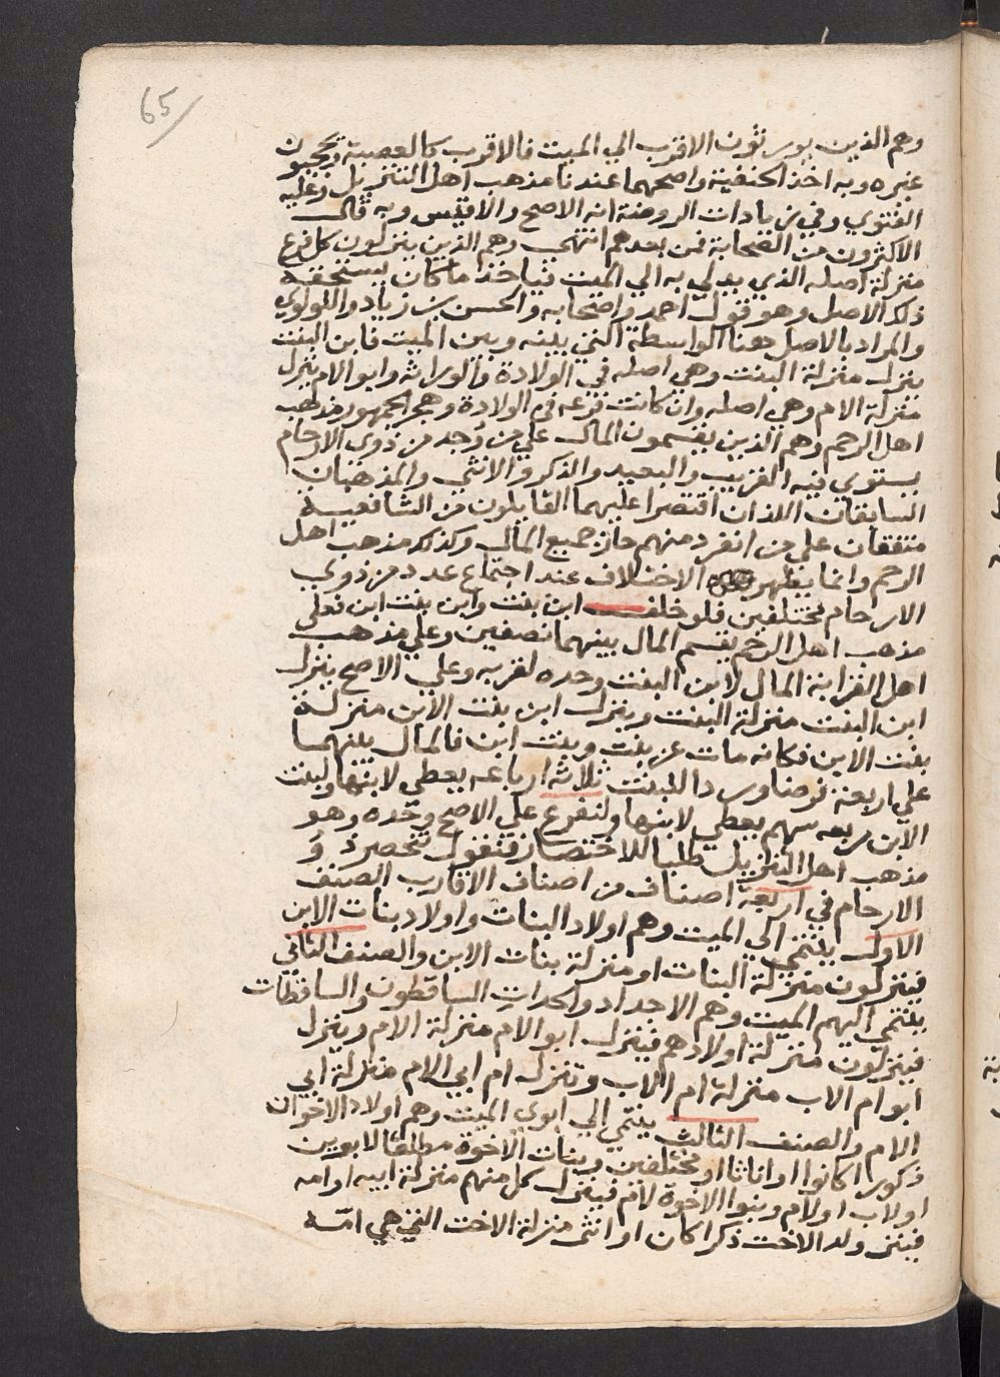 65
وهم الذين يورثون الاقرب الي الميت فالاقرب كالعصبة ويحجبون
غيره وبه اخذ الحنفية واصحهما عندنا مذهب اهل التنزيل وعليه
الفتوي وفي زيادات الروضة انه الاصح والاقيس وبه قال
الاكثرون من الصحابة فمن بعدهم انتهي وهم الذين ينزلون كل فرع
منزلة اصله الذي يدلي به الي الميت فياخذ ما كان يستحقه
ذلك الاصل وهو قول احمد واصحابه والحسن بن زياد واللولوي
والمراد بالاصل هنا الواسطة التي بينه وبين الميت فابن البنت
ينزل منزلة البنت وهي اصله في الولادة والوراثة وابو الام ينزل
منزلة الام وهي اصله وان كانت فرعه في الولادة وهجر الجمهور مذهب
اهل الرحم وهم الذين يقسمون المال علي من وجد من ذوي الارحام
يستوي فيه القريب والبعيد والذكر والانثي والمذهبان
السابقان اللذان اقتصرا عليهما القايلون من الشافعية
متفقان علي من انفرد منهم حاز جميع المال وكذلك مذهب اهل
الرحم وانما يظهر الاختلاف عند اجتماع عدد من ذوي
الارحام مختلفين فلو خلف ابن بنت وابن بنت ابن فعلي
مذهب اهل الرحم يقسم المال بينهما نصفين وعلي مذهب
اهل القرابة المال لابن البنت وحده لقربه وعلي الاصح ينزل
ابن البنت منزلة البنت وينزل ابن بنت الابن منزلة
بنت الابن فكانه مات عن بنت وبنت ابن فالمال بينهما
علي اربعة فرضا وردا للبنت ثلاثة ارباعه يعطي لابنها ولبنت
الابن ربعه سهم يعطي لابنها ولنفرع علي الاصح وحده وهو
مذهب اهل التنزيل طلبا للاختصار فنقول تنحصر ذوو
الارحام في اربعة اصناف من اصناف الاقارب الصنف
الاول ينتمي الي الميت وهم اولاد البنات واولاد بنات الابن
فينزلون منزلة البنات او منزلة بنات الابن والصنف الثاني
ينتمي اليهم الميت وهم الاجداد والجدات الساقطون والساقطات
فينزلون منزلة اولادهم فينزل ابو الام منزلة الام وينزل
ابو ام الاب منزلة ام الاب وتنزل ام ابي الام منزلة ابي
الام والصنف الثالث ينتمي الي ابوي الميت وهم اولاد الاخوات
ذكورا كانوا او اناثا او مختلفين وبنات الاخوة مطلقا لابوين
او لاب او لام وبنوا الاخوة لام فينزل كل منهم منزلة ابيه او امه
فينزل ولد الاخت ذكرا كان او انثي منزلة الاخت التي هي امه